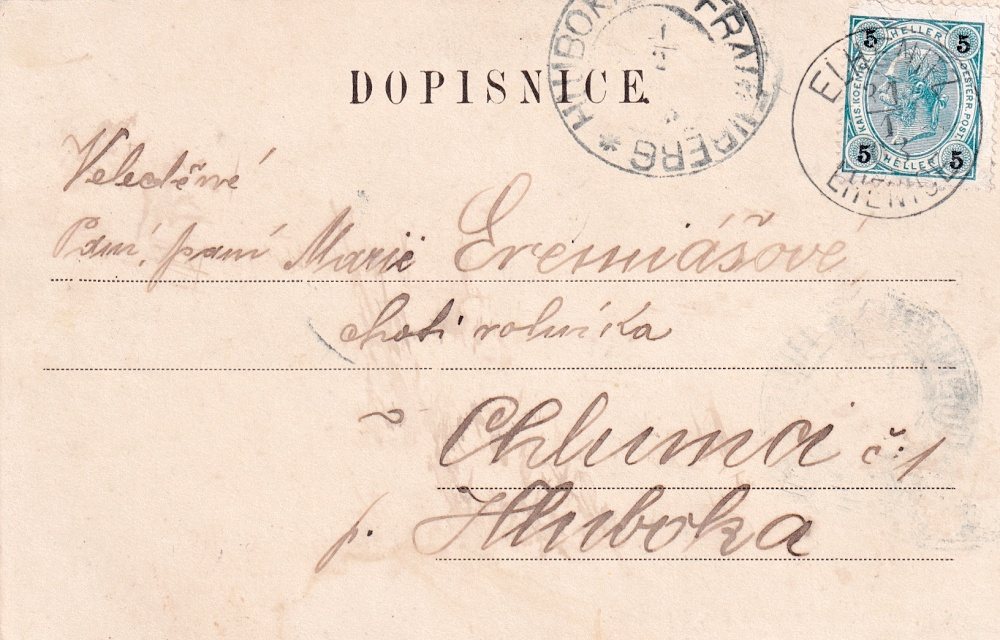 DOPISNICE.
HLUBOKÁ FRAUENBERG *
5 HELLER 5
KAIS. KOENIGL. OESTERR. POST.
5 HELLER 5
Veleděvné
Paní, paní Marii Eremiášové
choti rolníka
v Chlumci č: 1
p. Hluboká